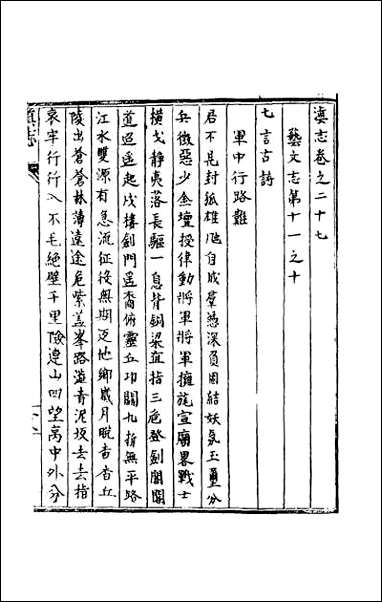 滇志卷之二十七
藝文志第十一之十
七言古詩
軍中行路難
君不見封狐雄虺自成羣憑深負固結妖氛玉璽分
兵徵惡少金壇授律動將軍將軍擁旄宣廟畧戰士
橫戈靜夷落長驅一息背銅梁直指三危登劍閣閣
道迢遥起戍樓劍門遥裔俯靈丘邛關九折無平路
江水雙源有急流征役無期返他鄉歲月晚杳杳丘
陵出蒼蒼林薄遠途危紫蓋峯路澁青泥坂去去指
哀牢行行入不毛絶壁千里險連山四望高中外分
滇志